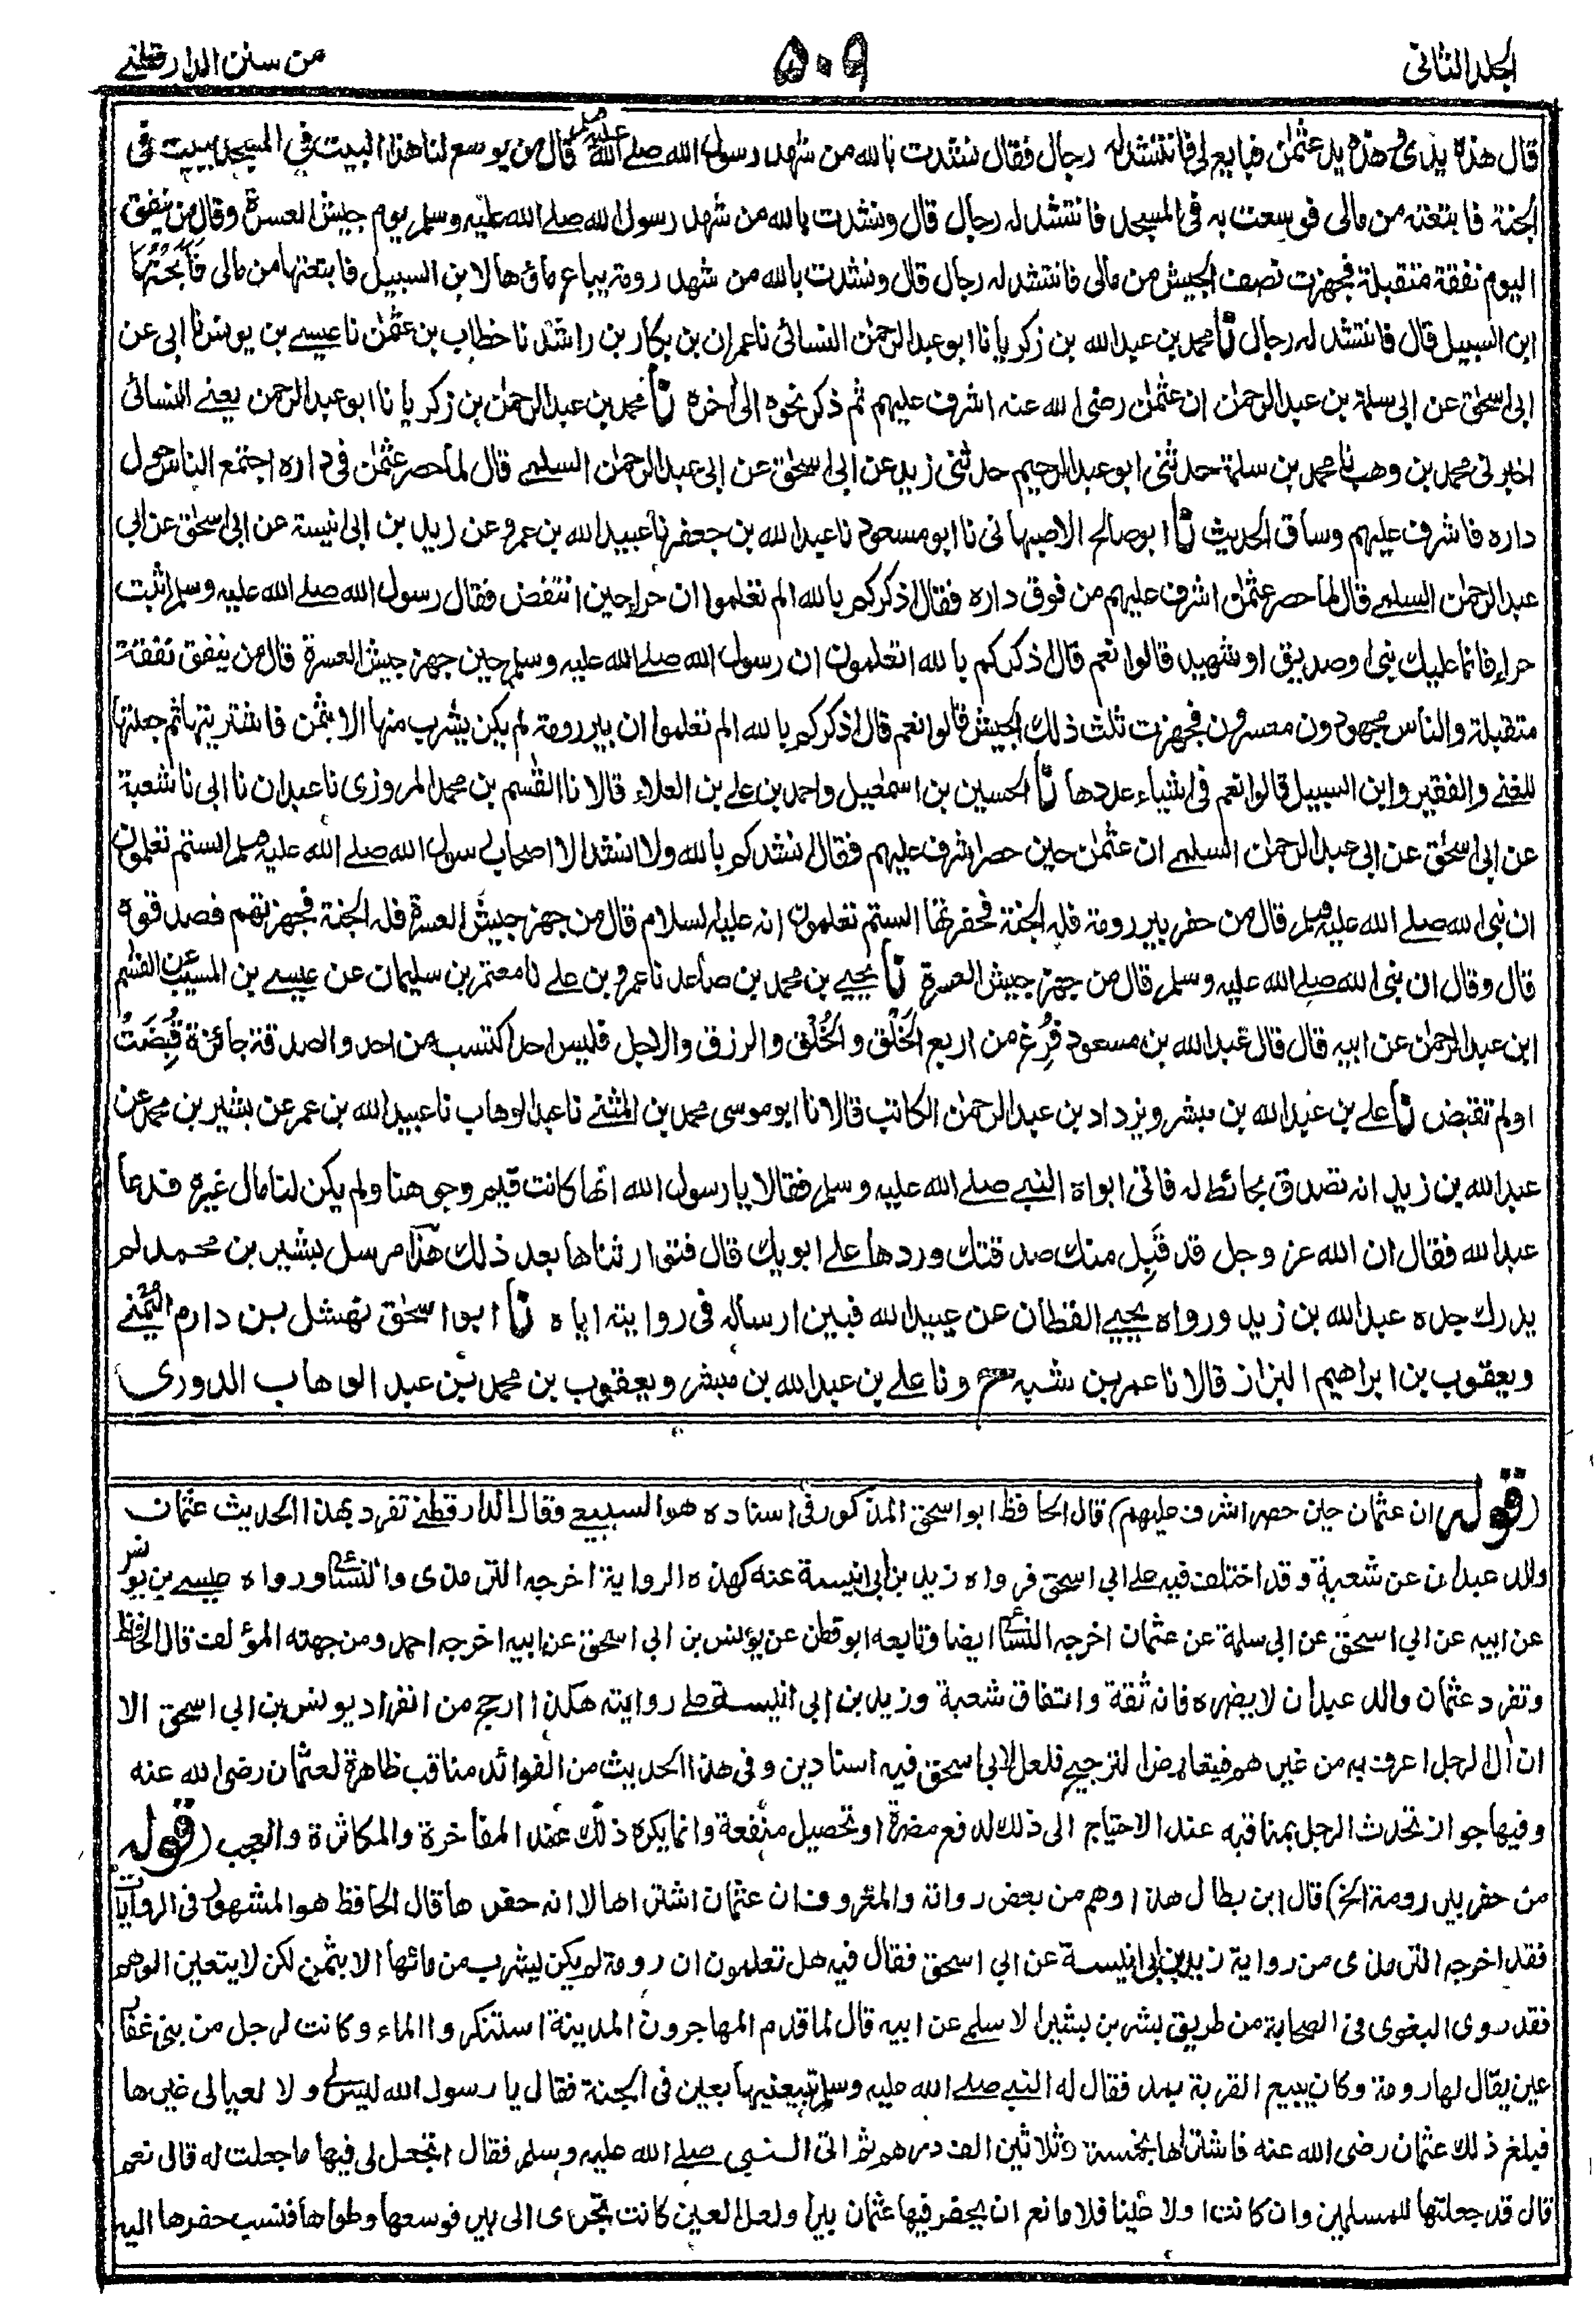 الجلد الثانى
٥٠٩
من سنن الدارقطنے
قال هذه يدى وهذه يد عثمٰن فبايع لى فانتشد له رجال فقال نشدت بالله من شهد رسول الله صلے الله عليه وسلم قال من يوسع لنا هذا البيت فى المسجد ببيت فى
الجنة فابتعته من مالى فوسعت به فى المسجد فانتشد له رجال قال ونشدت بالله من شهد رسول الله صلے الله عليه وسلم يوم جيش العسرة وقال من ينفق
اليوم نفقة متقبلة فجهزت نصف الجيش من مالى فانتشد له رجال قال ونشدت بالله من شهد رومة يباع ماؤها لابن السبيل فابتعتها من مالى فَاَبَحْتُهَا
ابن السبيل قال فانتشد له رجال نا محمد بن عبد الله بن زكريا نا ابو عبد الرحمٰن النسائى نا عمران بن بكار بن راشد نا خطاب بن عثمٰن نا عيسے بن يونس نا ابى عن
ابى اسحٰق عن ابى سلمة بن عبد الرحمٰن ان عثمٰن رضى الله عنه اشرف عليهم ثم ذكر نحوه الى اخره نا محمد بن عبد الرحمٰن بن زكريا نا ابو عبد الرحمن يعنے النسائى
اخبرنى محمد بن وهب نا محمد بن سلمة حدثنى ابو عبد الرحيم حدثنى زيد عن ابى اسحٰق عن ابى عبد الرحمٰن السلمے قال لما حصر عثمٰن فى داره اجتمع الناس حول
داره فاشرف عليهم وساق الحديث نا ابو صالح الاصبهانى نا ابو مسعود نا عبد الله بن جعفر نا عبيد الله بن عمرو عن زيد بن ابى انيسة عن ابى اسحٰق عن ابى
عبد الرحمٰن السلمے قال لما حصر عثمٰن اشرف عليهم من فوق داره فقال اذكركم بالله الم تعلموا ان حراء حين انتفض فقال رسول الله صلے الله عليه وسلم اثبت
حراء فانما عليك نبى او صديق او شهيد قالوا نعم قال اذكركم بالله اتعلمون ان رسول الله صلے الله عليه وسلم حين جهز جيش العسرة قال من ينفق نفقة
متقبلة والناس مجهودون معسرون فجهزت ثلث ذلك الجيش قالوا نعم قال اذكركم بالله الم تعلموا ان بير رومة لم يكن يشرب منها الا بثمن فاشتريتها ثم جعلتها
للغنے والفقير وابن السبيل قالوا نعم فى اشياء عددها نا الحسين بن اسمٰعيل واحمد بن علے بن العلاء قالا نا القٰسم بن محمد المروزى نا عبدان نا ابى نا شعبة
عن ابى اسحٰق عن ابى عبد الرحمٰن السلمے ان عثمٰن حين حصر اشرف عليهم فقال انشدكم بالله ولا انشد الا اصحاب رسول الله صلے الله عليه وسلم الستم تعلمون
ان نبى الله صلے الله عليه وسلم قال من حفر بير رومة فله الجنة فحفرتها الستم تعلمون انه عليه السلام قال من جهز جيش العسرة فله الجنة فجهزتهم فصدقوه
قال وقال ان نبى الله صلے الله عليه وسلم قال من جهز جيش العسرة نا يحيے بن محمد بن صاعد نا عمرو بن علے نا معتمر بن سليمان عن عيسے بن المسيب عن القٰسم
ابن عبد الرحمٰن عن ابيه قال قال عبد الله بن مسعود فُرِغ من اربع الخَلْق و الخُلُق و الرزق والاجل فليس احد اكتسب من احد والصدقة جائزة قُبِضَتْ
اولم تقبض نا علے بن عبد الله بن مبشر ويزداد بن عبد الرحمٰن الكاتب قالا نا ابو موسى محمد بن المثنے نا عبد الوهاب نا عبيد الله بن عمر عن بشير بن محمد عن
عبد الله بن زيد انه تصدق بحائط له فاتى ابواه النبے صلے الله عليه وسلم فقالا يا رسول الله انها كانت قيم وجوهنا ولم يكن لنا مال غيره فدعا
عبد الله فقال ان الله عز وجل قد قَبِل منك صدقتك وردها علے ابويك قال فتوارثناها بعد ذلك هذا مرسل بشير بن محمد لم
يدرك جده عبد الله بن زيد ورواه يحيے القطان عن عبيد الله فبين ارساله فى روايته اياه نا ابو اسحٰق نهشل بن دارم التميمے
ويعقوب بن ابراهيم البزاز قالا نا عمر بن شبه ح و نا علے بن عبد الله بن مبشر ويعقوب بن محمد بن عبد الوهاب الدورى
(قوله ان عثمان حين حصر اشرف عليهم) قال الحافظ ابو اسحق المذكور فى اسناده هو السبيعے فقال الدارقطنے تفرد بهذا الحديث عثمان
والد عبدان عن شعبة وقد اختلف فيه علے ابى اسحق فرواه زيد بن ابى انيسة عنه كهذه الرواية اخرجه الترمذى والنسائى ورواه عيسے بن يونس
عن ابيه عن ابى اسحق عن ابى سلمة عن عثمان اخرجه النسائى ايضا وتابعه ابو قطن عن يونس بن ابى اسحق عن ابيه اخرجه احمد ومن جهته المؤلف قال الحافظ
وتفرد عثمان والد عبدان لا يضره فانه ثقة واتفاق شعبة وزيد بن ابى انيسة علے روايته هكذا ارجح من انفراد يونس بن ابى اسحق الا
ان ال الرجل اعرف به من غيرهم فيتعارض الترجيح فلعل لابى اسحق فيه اسنادين وفى هذا الحديث من الفوائد مناقب ظاهرة لعثمان رضى الله عنه
وفيها جواز تحدث الرجل بمناقبه عند الاحتياج الى ذلك لدفع مضرة او تحصيل منفعة وانما يكره ذلك عند المفاخرة والمكاثرة والعجب (قوله
من حفر بير رومة الخ) قال ابن بطال هذا وهم من بعض رواته والمعروف ان عثمان اشتراها لا انه حفرها قال الحافظ هو المشهور فى الروايات
فقد اخرجه الترمذى من رواية زيد بن ابى انيسة عن ابى اسحق فقال فيه هل تعلمون ان رومة لم يكن يشرب من مائها الا بثمن لكن لا يتعين الوهم
فقد روى البغوى فى الصحابة من طريق بشر بن بشير الاسلمے عن ابيه قال لما قدم المهاجرون المدينة استنكروا الماء وكانت لرجل من بنى غفار
عين يقال لها رومة وكان يبيع القربة بمد فقال له النبے صلے الله عليه وسلم تبيعنيها بعين فى الجنة فقال يا رسول الله ليس لى ولا لعيالى غيرها
فبلغ ذلك عثمان رضى الله عنه فاشتراها بخمسة وثلاثين الف درهم ثم اتى النبى صلے الله عليه وسلم فقال اتجعل لى فيها ما جعلت له قال نعم
قال قد جعلتها للمسلمين وان كانت اولا عينا فلا مانع ان يحفر فيها عثمان بيرا ولعل العين كانت تجرى الى بير فوسعها وطواها فنسب حفرها اليه